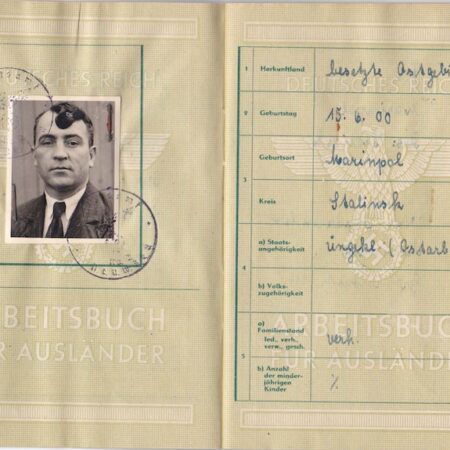 DEUTSCHES REICH
ARBEITSBUCH
FÜR AUSLÄNDER
DEUTSCHES REICH
1 Herkunftland besetzte Ostgebi
2 Geburtstag 15. 6. 00
3 Geburtsort Marinpol
Kreis Stalinsk
4 a) Staats-
angehörigkeit ungekl. (Ostarb
b) Volks-
zugehörigkeit
5 a)
Familienstand
led., verh.,
verw., gesch. verh.
b) Anzahl
der minder-
jährigen
Kinder ∕.
ARBEITSBUCH
FÜR AUSLÄNDER